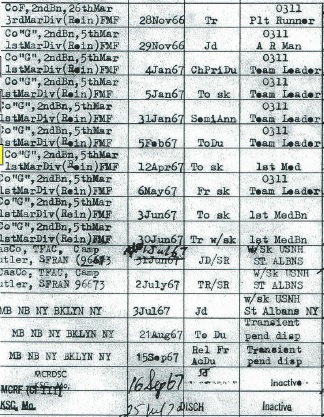 CoF, 2ndBn, 26thMar
3rdMarDiv(Rein)FMF 28Nov66 Tr 0311 Plt Runner
Co"G", 2ndBn, 5thMar
1stMarDiv(Rein)FMF 29Nov66 Jd 0311 A R Man
Co"G", 2ndBn, 5thMar
1stMarDiv(Rein)FMF 4Jan67 ChPriDu 0311 Team Leader
Co"G", 2ndBn, 5thMar
1stMarDiv(Rein)FMF 5Jan67 To sk 0311 Team Leader
Co"G", 2ndBn, 5thMar
1stMarDiv(Rein)FMF 31Jan67 SemiAnn 0311 Team Leader
Co"G", 2ndBn, 5thMar
1stMarDiv(Rein)FMF 5Feb67 ToDu 0311 Team Leader
Co"G", 2ndBn, 5thMar
1stMarDiv(Rein)FMF 12Apr67 To sk 1st Med
Co"G", 2ndBn, 5thMar
1stMarDiv(Rein)FMF 6May67 Fr sk 0311 Team Leader
Co"G", 2ndBn, 5thMar
1stMarDiv(Rein)FMF 3Jun67 To sk 1st MedBn
Co"G", 2ndBn, 5thMar
1stMarDiv(Rein)FMF 30Jun67 Tr w/sk 1st MedBn
asCo, TFAC, Camp
utler, SFRAN (96673 31Jun67 JD/SR W/Sk USNH ST ALBNS
asCo, TFAC, Camp
utler, SFRAN 96673 2July67 TR/SR W/Sk USNH ST ALBNS
MB NB NY BKLYN NY 3Jul67 Jd w/sk USNH St Albans NY
MB NB NY BKLYN NY 21Aug67 To Du Transient pend disp
MB NB NY BKLYN NY 15Sep67 Rel Fr AcDu Transient pend disp
MCRDSC
KSC, Mo. 16Sep67 Jd Inactive
MCRF
KSC, Mo. DISCH Inactive